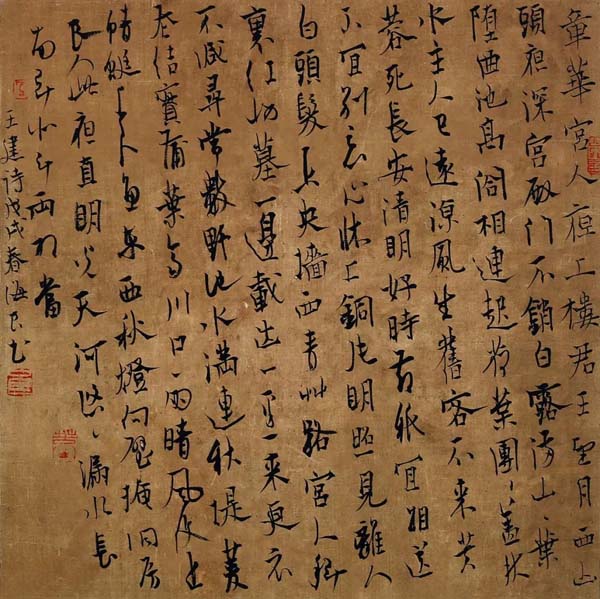 章華宮人夜上樓君王望月西山
頭夜深宮殿門不鎖白露滿山々葉
墮西池高閣相連起荷葉團々蓋秋
水主人已遠涼風生舊客不來芙
蓉死長安清明好時节祇宜相送
不宜別惡心牀上銅片明照見離人
白頭髮未央墻西青草路宮人斜
裏紅妝墓一邊載出一邊來更衣
不減尋常數野池水滿連秋堤菱
花結實蒲葉齊川口雨晴風復止
蜻蜓上下魚東西秋燈向壁掩洞房
良人此夜直明光天河悠々漏水長
南斗北斗兩相當
王建詩戊戌春海